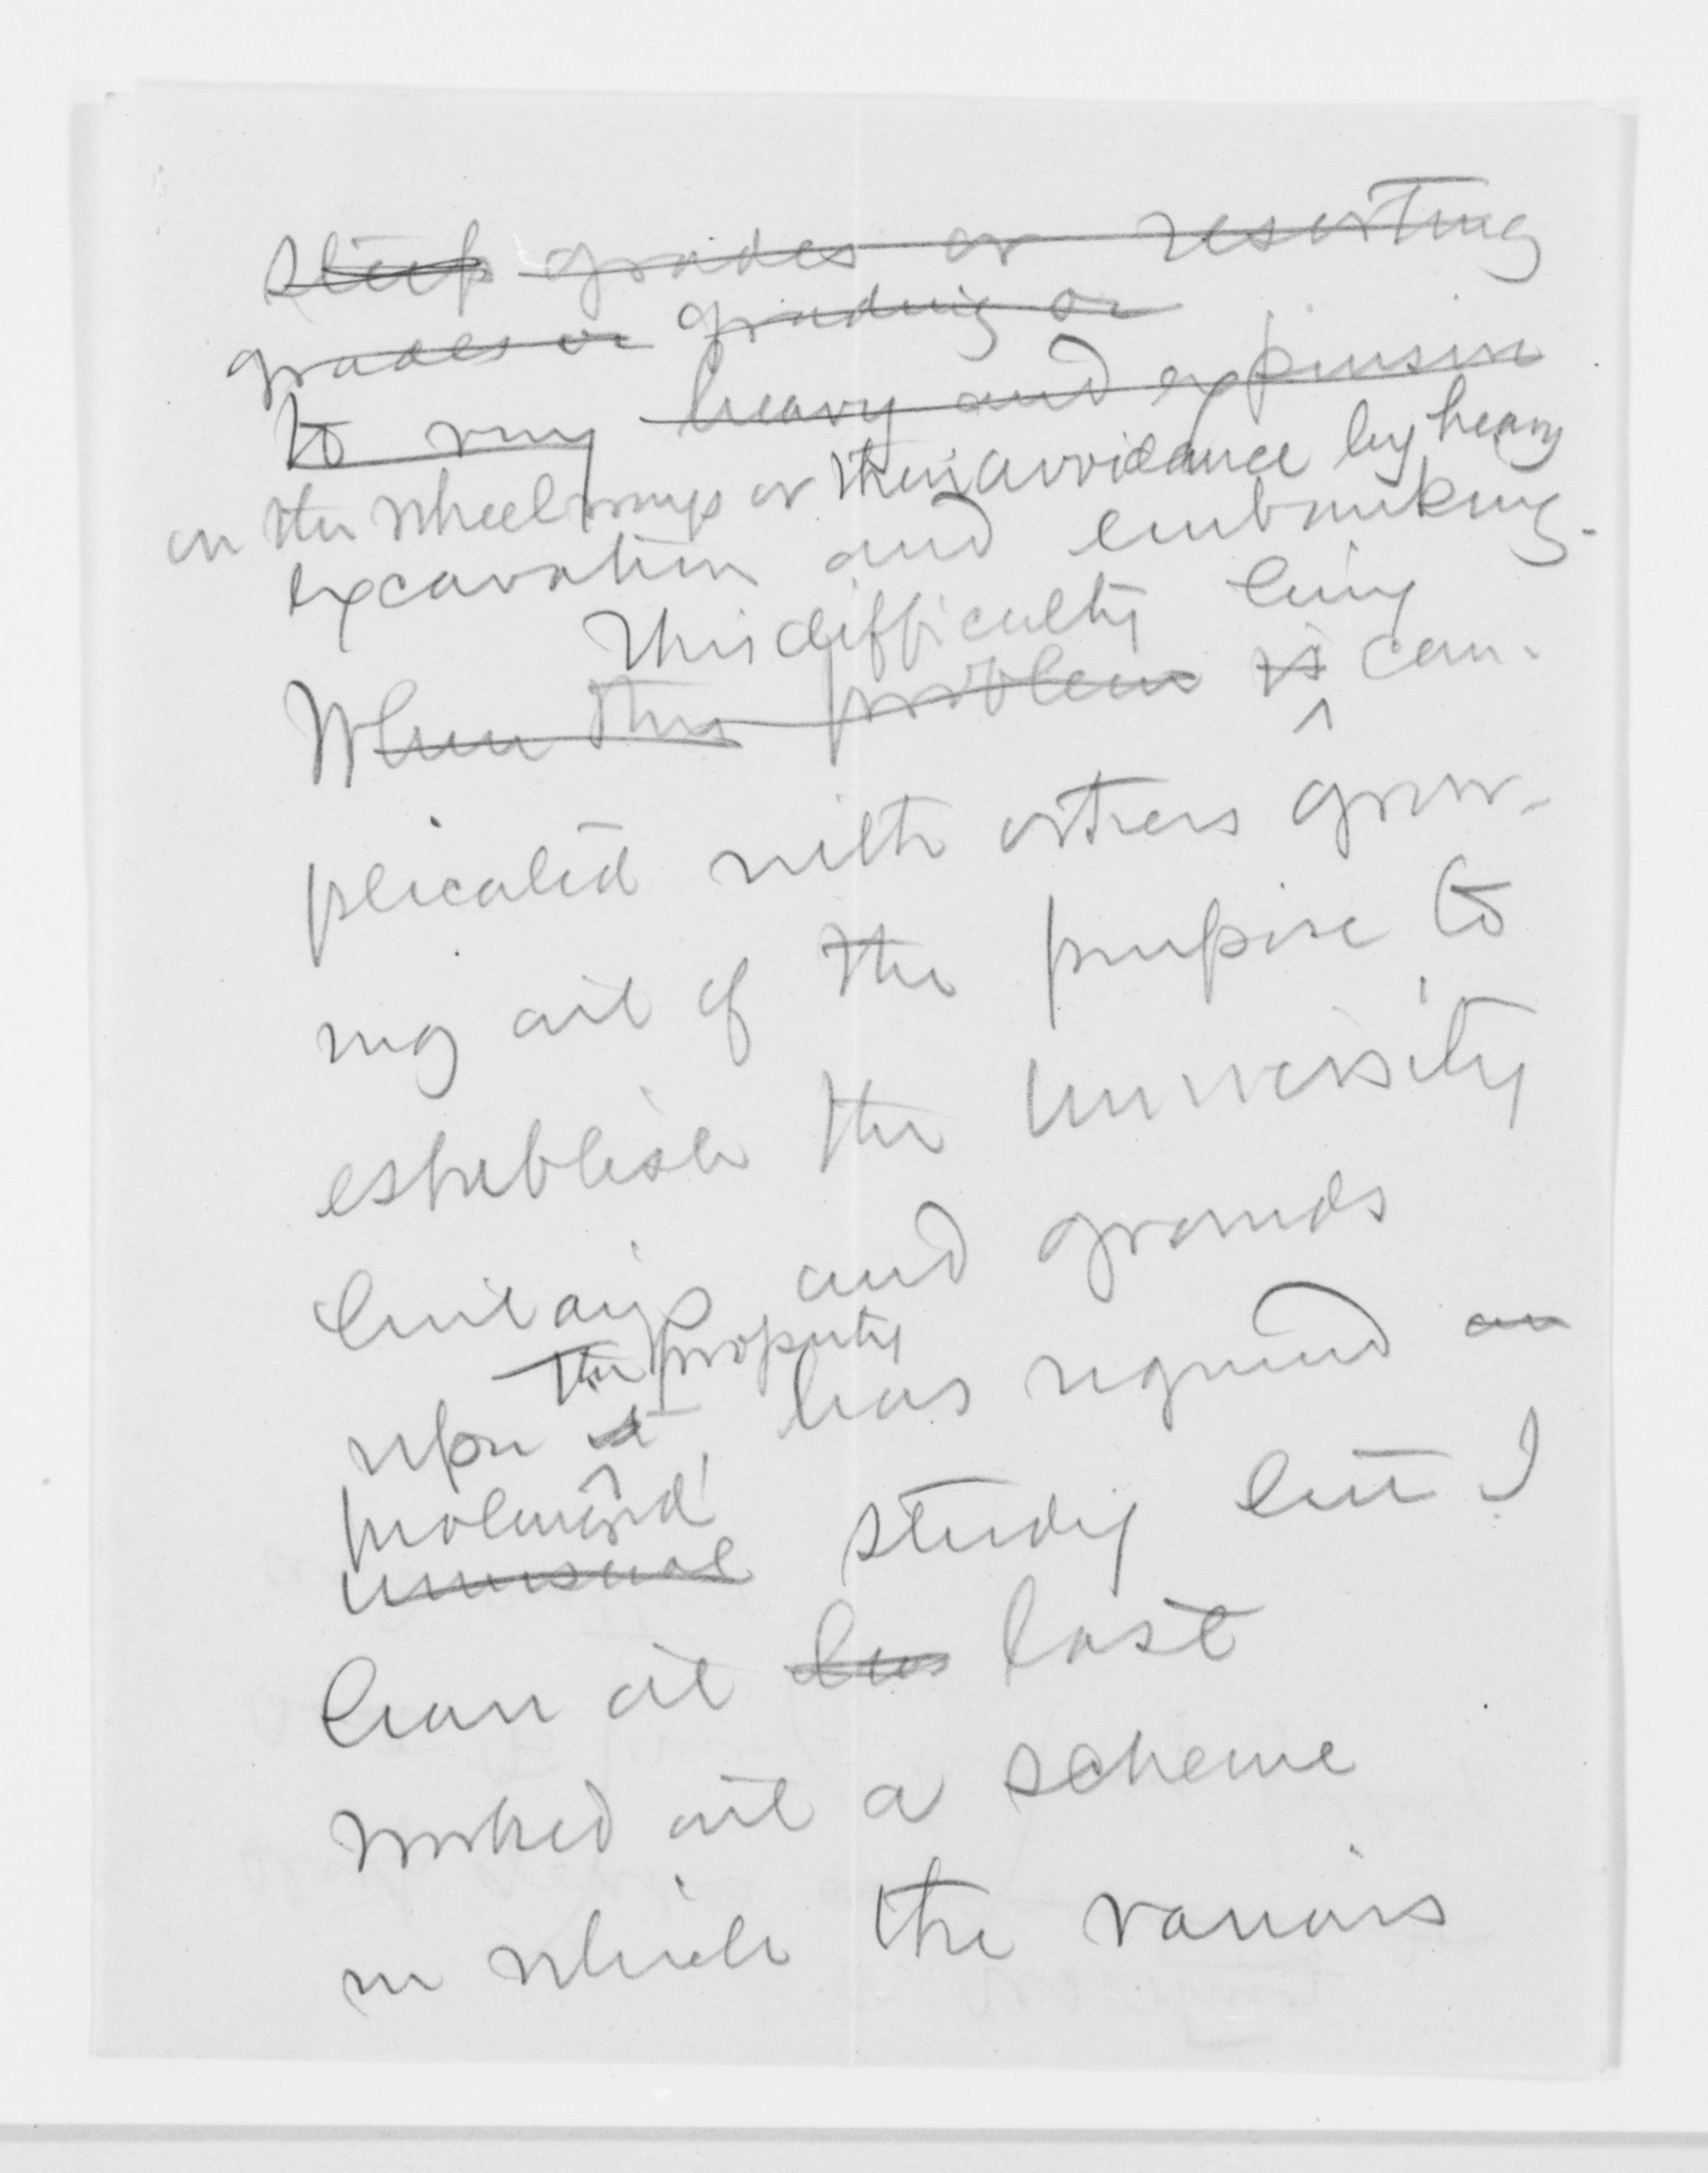 steep grades or resorting
grades or grading or
to very heavy and expensive
on the wheelways or their avoidance by heavy
excavation and embanking.
This difficulty being
When this problem is com-
plicated with others grow-
ing out of the purpose to
establish the University
buildings and grounds
the property
upon it has required an
profound
unusual study but I
have at last
worked out a scheme
in which the various